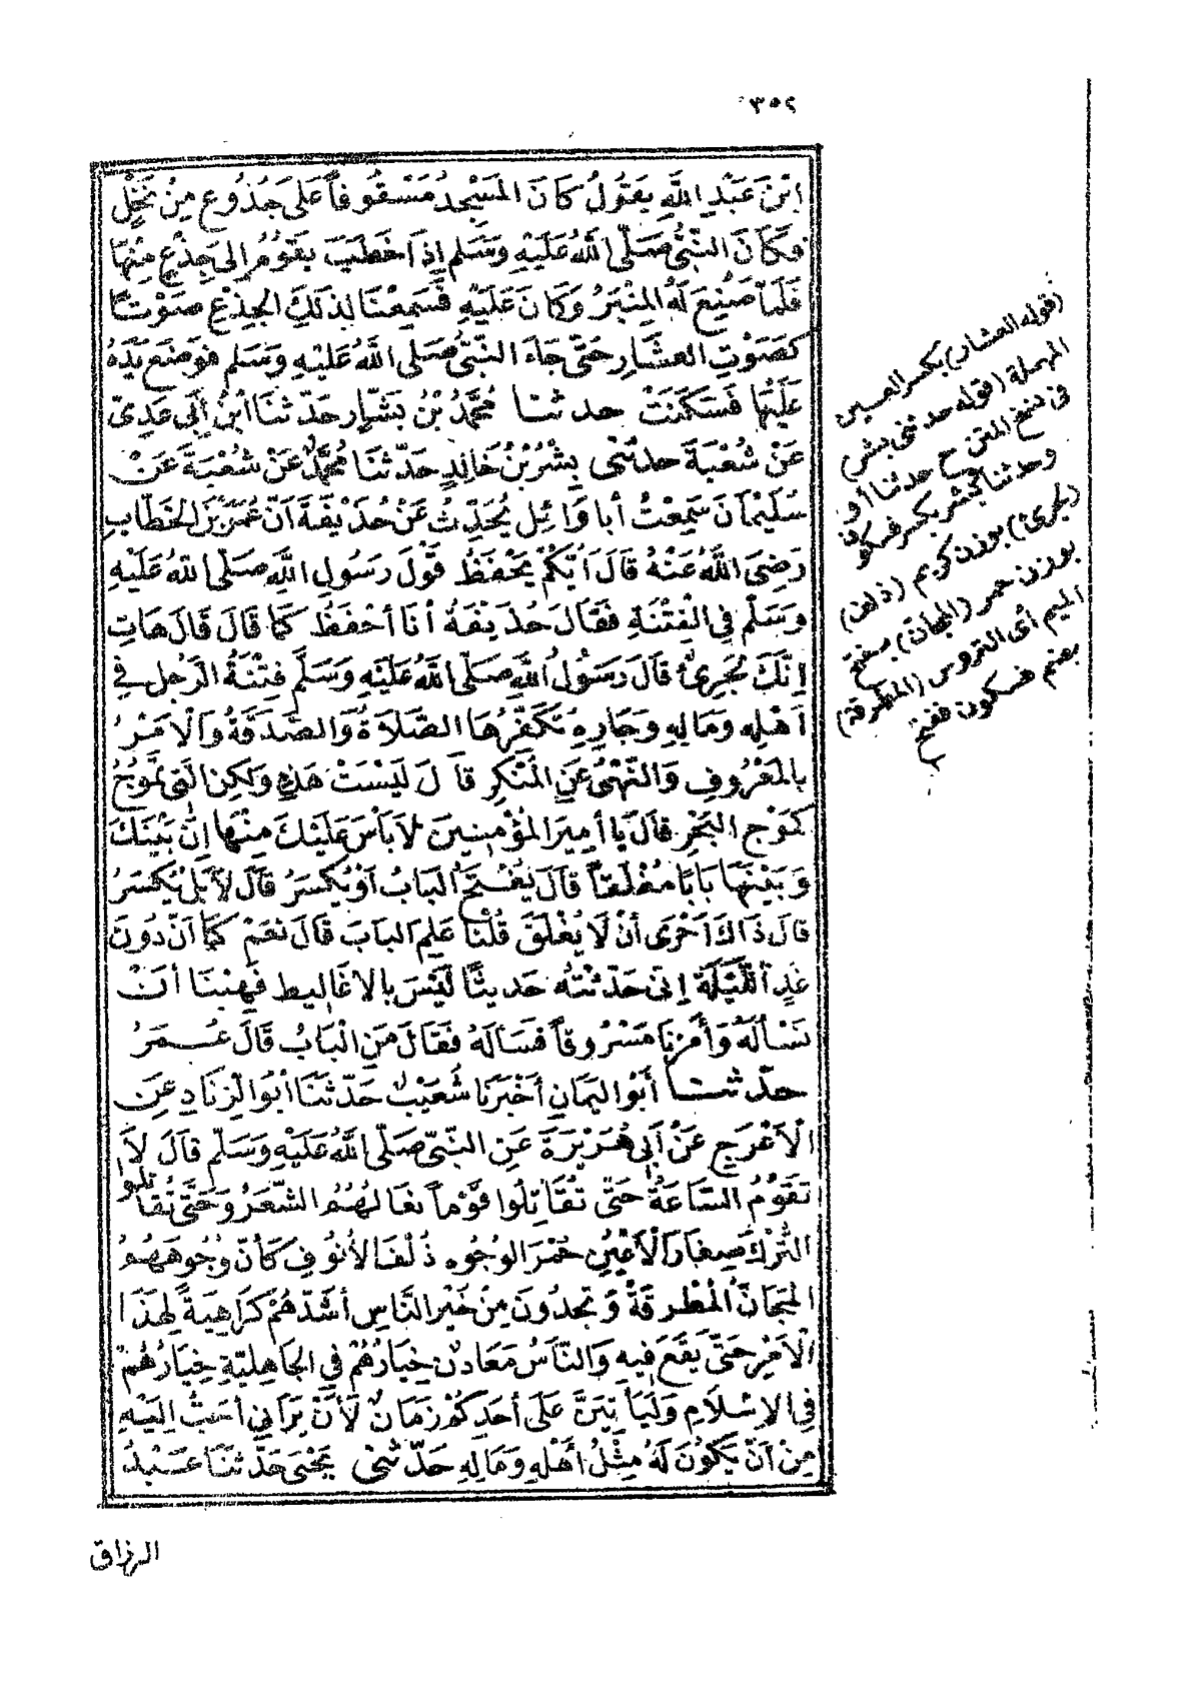 ٣٥٢
ابْنَ عَبْدِ اللَّهِ يَقُولُ كَانَ الْمَسْجِدُ مَسْقُوفاً عَلَى جُذُوعٍ مِنْ نَخْلٍ
فَكَانَ النَّبِيُّ صَلَّى اللَّهُ عَلَيْهِ وَسَلَّمَ إِذَا خَطَبَ يَقُومُ إِلَى جِذْعٍ مِنْهَا
فَلَمَّا صُنِعَ لَهُ الْمِنْبَرُ وَكَانَ عَلَيْهِ فَسَمِعْنَا لِذَلِكَ الْجِذْعِ صَوْتًا
كَصَوْتِ الْعِشَارِ حَتَّى جَاءَ النَّبِيُّ صَلَّى اللَّهُ عَلَيْهِ وَسَلَّمَ فَوَضَعَ يَدَهُ
عَلَيْهَا فَسَكَنَتْ حدثنا مُحَمَّدُ بْنُ بَشَّارٍ حَدَّثَنَا ابْنُ أَبِي عَدِيٍّ
عَنْ شُعْبَةَ حَدَّثَنِي بِشْرُ بْنُ خَالِدٍ حَدَّثَنَا مُحَمَّدٌ عَنْ شُعْبَةَ عَنْ
سُلَيْمَانَ سَمِعْتُ أَبَا وَائِلٍ يُحَدِّثُ عَنْ حُذَيْفَةَ أَنَّ عُمَرَ بْنَ الْخَطَّابِ
رَضِيَ اللَّهُ عَنْهُ قَالَ أَيُّكُمْ يَحْفَظُ قَوْلَ رَسُولِ اللَّهِ صَلَّى اللَّهُ عَلَيْهِ
وَسَلَّمَ فِي الْفِتْنَةِ فَقَالَ حُذَيْفَةُ أَنَا أَحْفَظُ كَمَا قَالَ قَالَ هَاتِ
إِنَّكَ لَجَرِيءٌ قَالَ رَسُولُ اللَّهِ صَلَّى اللَّهُ عَلَيْهِ وَسَلَّمَ فِتْنَةُ الرَّجُلِ فِي
أَهْلِهِ وَمَالِهِ وَجَارِهِ تُكَفِّرُهَا الصَّلَاةُ وَالصَّدَقَةُ وَالْأَمْرُ
بِالْمَعْرُوفِ وَالنَّهْيُ عَنِ الْمُنْكَرِ قَالَ لَيْسَتْ هَذِهِ وَلَكِنِ الَّتِي تَمُوجُ
كَمَوْجِ الْبَحْرِ قَالَ يَا أَمِيرَ الْمُؤْمِنِينَ لَا بَأْسَ عَلَيْكَ مِنْهَا إِنَّ بَيْنَكَ
وَبَيْنَهَا بَابًا مُغْلَقًا قَالَ يُفْتَحُ الْبَابُ أَوْ يُكْسَرُ قَالَ لَا بَلْ يُكْسَرُ
قَالَ ذَاكَ أَحْرَى أَنْ لَا يُغْلَقَ قُلْنَا عَلِمَ الْبَابَ قَالَ نَعَمْ كَمَا أَنَّ دُونَ
غَدٍ اللَّيْلَةَ إِنِّي حَدَّثْتُهُ حَدِيثًا لَيْسَ بِالْأَغَالِيطِ فَهِبْنَا أَنْ
نَسْأَلَهُ وَأَمَرْنَا مَسْرُوقاً فَسَأَلَهُ فَقَالَ مَنِ الْبَابُ قَالَ عُمَرُ
حدّثنا أَبُو الْيَمَانِ أَخْبَرَنَا شُعَيْبٌ حَدَّثَنَا أَبُو الزِّنَادِ عَنِ
الْأَعْرَجِ عَنْ أَبِي هُرَيْرَةَ عَنِ النَّبِيِّ صَلَّى اللَّهُ عَلَيْهِ وَسَلَّمَ قَالَ لَا
تَقُومُ السَّاعَةُ حَتَّى تُقَاتِلُوا قَوْماً نِعَالُهُمُ الشَّعَرُ وَحَتَّى تُقَاتِلُوا
التُّرْكَ صِغَارَ الْأَعْيُنِ حُمْرَ الْوُجُوهِ ذُلْفَ الْأُنُوفِ كَأَنَّ وُجُوهَهُمُ
الْمَجَانُّ الْمُطْرَقَةُ وَتَجِدُونَ مِنْ خَيْرِ النَّاسِ أَشَدَّهُمْ كَرَاهِيَةً لِهَذَا
الْأَمْرِ حَتَّى يَقَعَ فِيهِ وَالنَّاسُ مَعَادِنُ خِيَارُهُمْ فِي الْجَاهِلِيَّةِ خِيَارُهُمْ
فِي الْإِسْلَامِ وَلَيَأْتِيَنَّ عَلَى أَحَدِكُمْ زَمَانٌ لَأَنْ يَرَانِي أَحَبُّ إِلَيْهِ
مِنْ أَنْ يَكُونَ لَهُ مِثْلُ أَهْلِهِ وَمَالِهِ حَدَّثَنِي يَحْيَى حَدَّثَنَا عَبْدُ
الرزاق
(قوله العشار) بكسر العين
المهملة (قوله حدثني بشر)
في نسخ المتن ح حدثنا أو
وحدثنا بشر بكسر فسكون
(لجرئ) بوزن كريم (ذلف)
بوزن حمر (المجان) بفتح
الميم أي التروس (المطرقة)
بضم فسكون ففتح